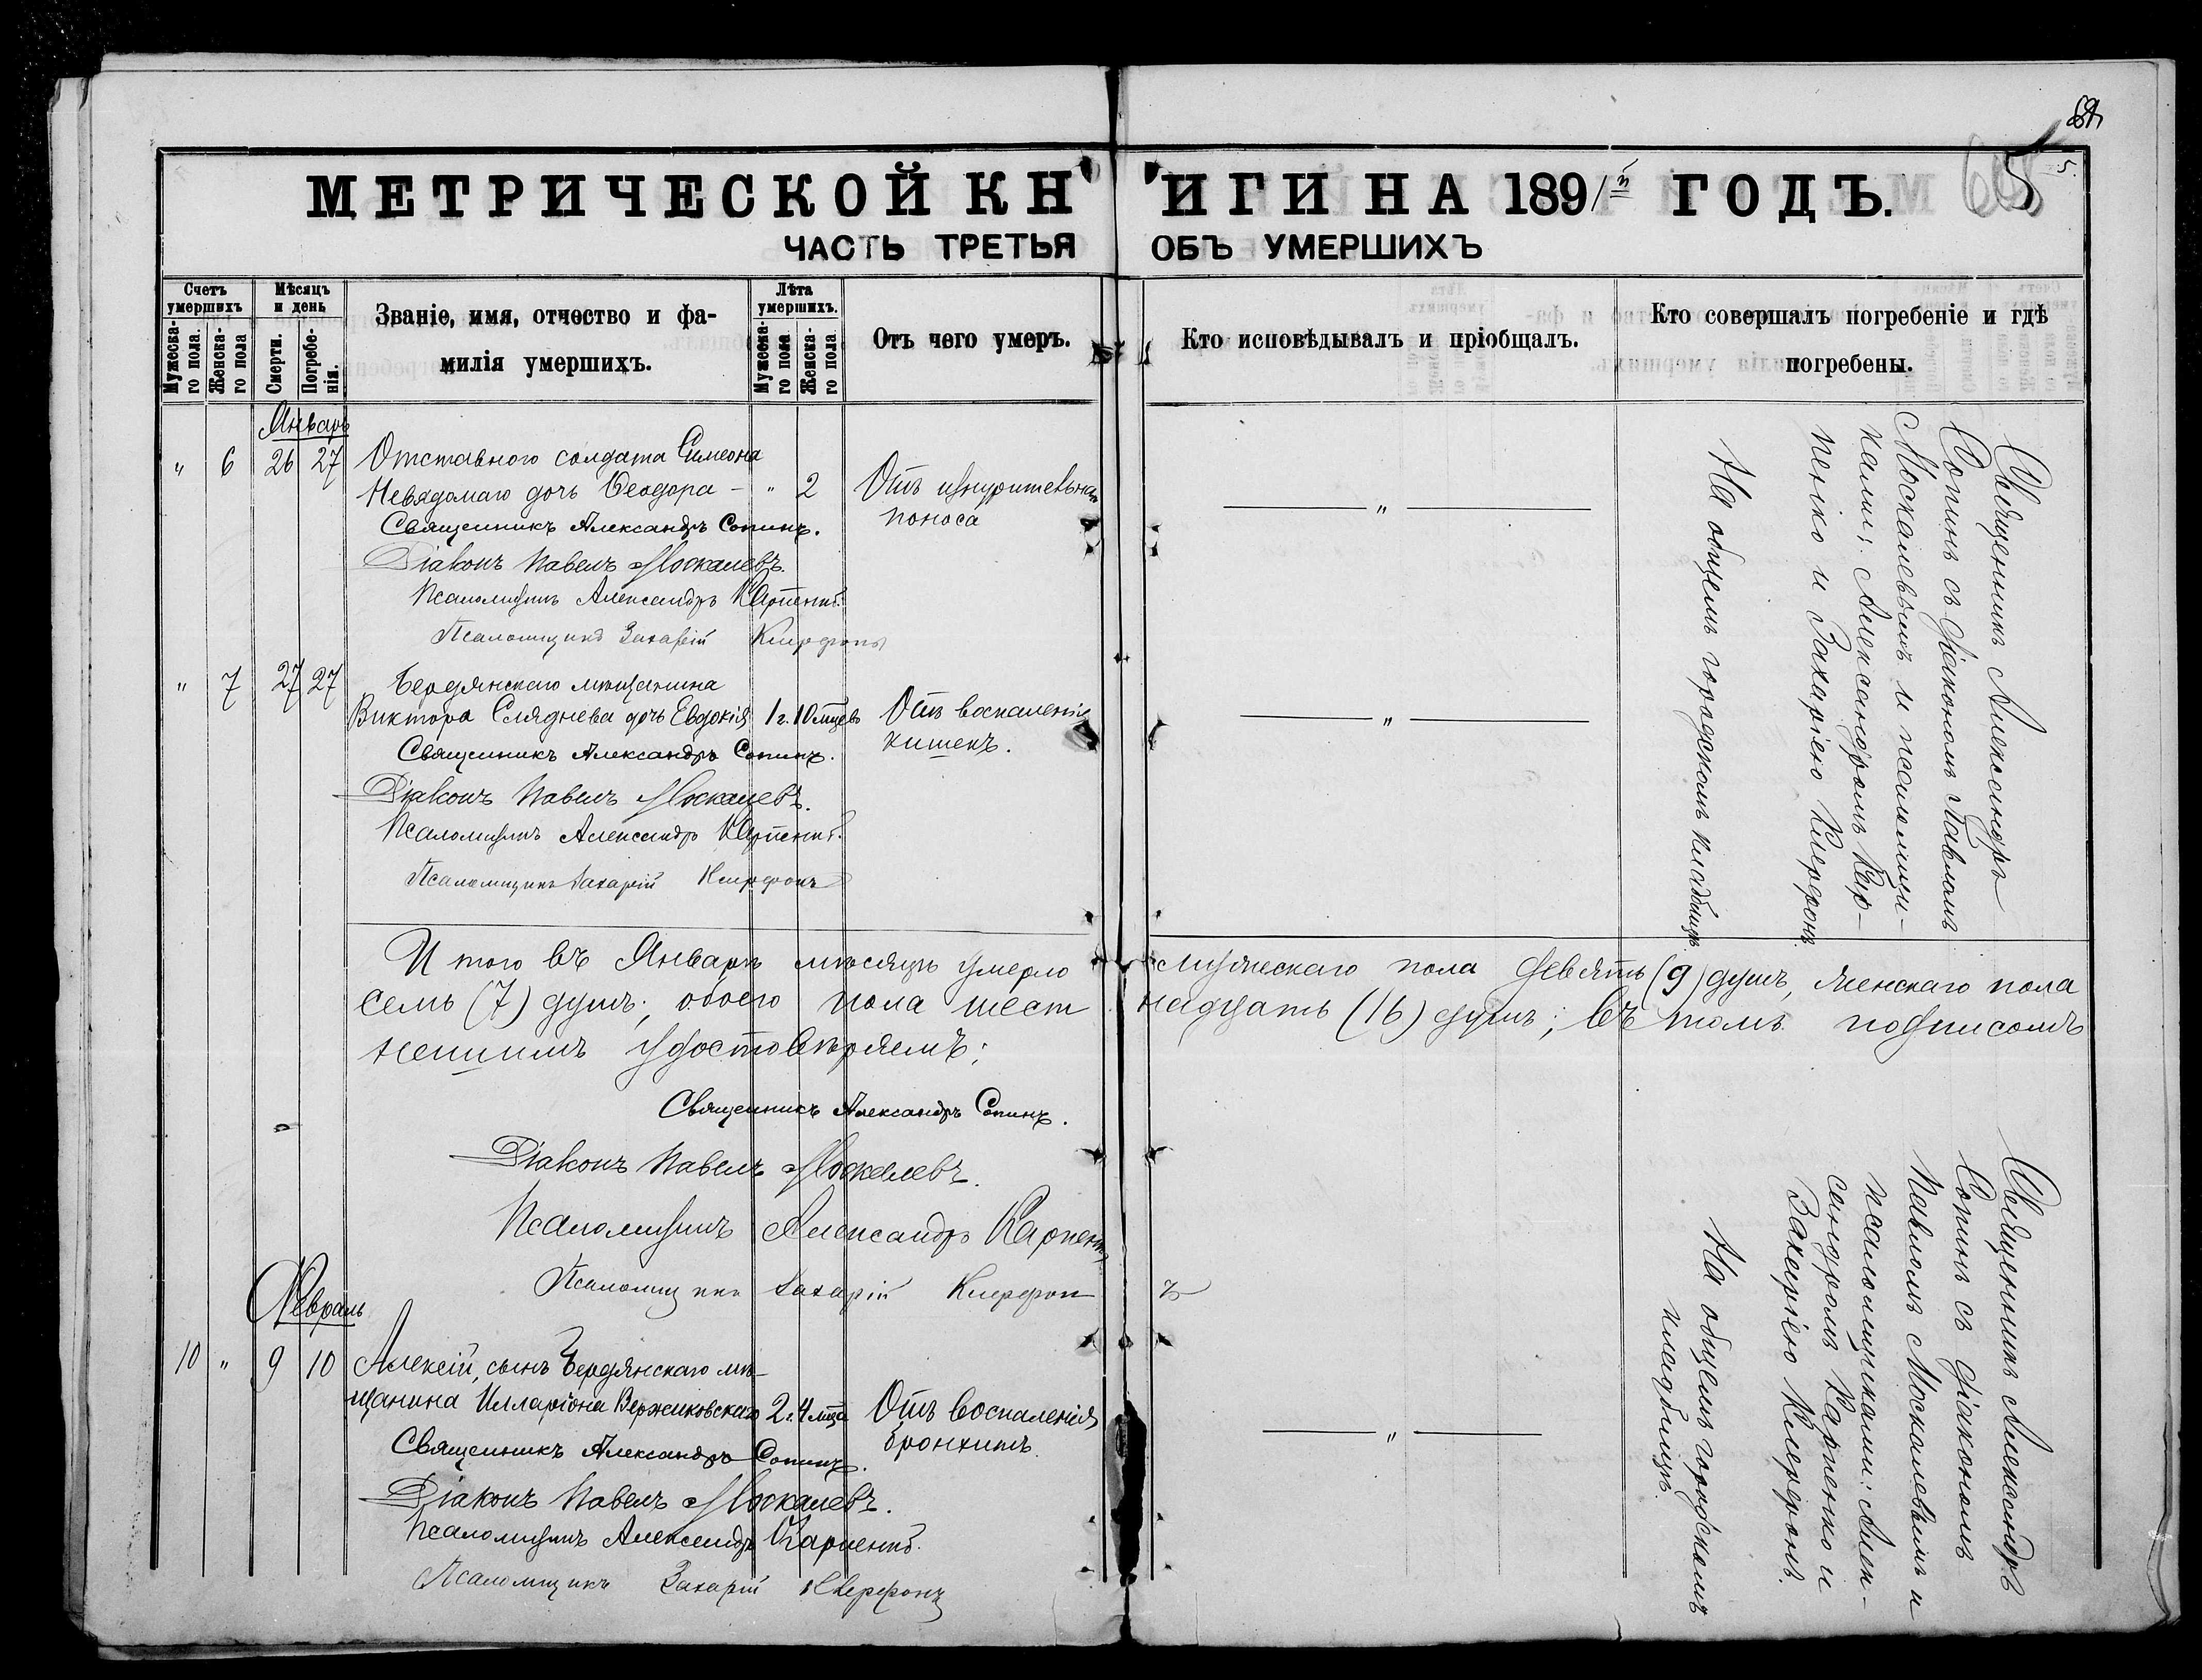 МЕТРИЧЕСКОЙ КНИГИ НА 1891й ГОДЪ.
ЧАСТЬ ТРЕТЬЯ ОБЪ УМЕРШИХЪ
5
Счетъ умершихъ
Мужеска-
го пола.
Женска-
го пола
Мѣсяцъ и день
Смерти.
Погребе-
нія.
Званіе, имя, отчество и фа-
милія умершихъ.
Лѣта умершихъ.
Мужеска-
го пола
Женска-
го пола
Отъ чего умеръ.
Кто исповѣдывалъ и пріобщалъ.
Кто совершалъ погребеніе и гдѣ
погребены.
Январь
" 6 26 27 Отставного солдата Симеона
Невядомаго дочь Ѳеодора - " 2 Отъ изнурительнаго
поноса
Священникъ Александръ Сопинъ.
Діаконъ Павелъ Москалевъ.
Псаломщикъ Александръ Карпенко.
Псаломщикъ Захарій Ксирофонъ
— " —
" 7 27 27 Бердянскаго мѣщанина
Виктора Сляднева дочь Евдокія 1 г. 10 мцевъ Отъ воспаленія
кишекъ.
Священникъ Александръ Сопинъ.
Діаконъ Павелъ Москалевъ.
Псаломщикъ Александръ Карпенко.
Псаломщикъ Захарій Ксирофонъ
— " —
Священникъ Александръ
Сопинъ съ діакономъ Павломъ
Москалевымъ и псаломщи-
ками: Александромъ Кар-
пенко и Захаріею Ксирофонъ.
На общемъ городскомъ кладбищѣ.
И того въ Январѣ мѣсяцѣ умерло мужескаго пола девять (9) душъ, женскаго пола
семь (7) душъ; обоего пола шестнадцать (16) душъ; въ томъ подписомъ
нашимъ удостовѣряемъ:
Священникъ Александръ Сопинъ.
Діаконъ Павелъ Москалевъ.
Псаломщикъ Александръ Карпенко
Псаломщикъ Захарій Ксирофонъ
Февраль
10 " 9 10 Алексій, сынъ Бердянскаго мѣ-
щанина Илларіона Вержиковскаго 2 г. 4 мца Отъ воспаленія
бронхитъ.
Священникъ Александръ Сопинъ.
Діаконъ Павелъ Москалевъ.
Псаломщикъ Александръ Карпенко.
Псаломщикъ Захарій Ксирофонъ
— " —
Священникъ Александръ
Сопинъ съ діакономъ
Павломъ Москалевымъ и
псаломщиками: Алек-
сандромъ Карпенко и
Захаріею Ксирофонъ.
На общемъ городскомъ
кладбищѣ.